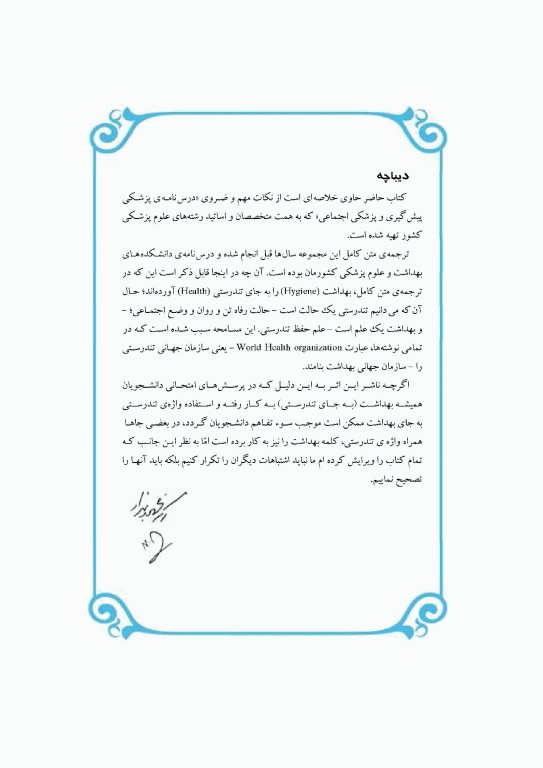 دیباچه
کتاب حاضر حاوی خلاصه‌ای است از نکات مهم و ضروی «درس‌نامه‌ی پزشکی
پیش‌گیری و پزشکی اجتماعی» که به همت متخصصان و اساتید رشته‌های علوم پزشکی
کشور تهیه شده است.
ترجمه‌ی متن کامل این مجموعه سال‌ها قبل انجام شده و درس‌نامه‌ی دانشکده‌های
بهداشت و علوم پزشکی کشورمان بوده است. آن چه در اینجا قابل ذکر است این که در
ترجمه‌ی متن کامل، بهداشت (Hygiene) را به جای تندرستی (Health) آورده‌اند؛ حال
آن که می دانیم تندرستی یك حالت است – حالت رفاه تن و روان و وضع اجتماعی؛ –
و بهداشت یك علم است – علم حفظ تندرستی. این مسامحه سبب شده است که در
تمامی نوشته‌ها، عبارت World Health organization – یعنی سازمان جهانی تندرستی
را – سازمان جهانی بهداشت بنامند.
اگرچه ناشر این اثر به این دلیل که در پرسش‌های امتحانی دانشجویان
همیشه بهداشت (به جای تندرستی) به کار رفته و استفاده واژه‌ی تندرستی
به جای بهداشت ممکن است موجب سوء تفاهم دانشجویان گردد، در بعضی جاها
همراه واژه ی تندرستی، کلمه بهداشت را نیز به کار برده است امّا به نظر این جانب که
تمام کتاب را ویرایش کرده ام ما نباید اشتباهات دیگران را تکرار کنیم بلکه باید آنها را
تصحیح نماییم.